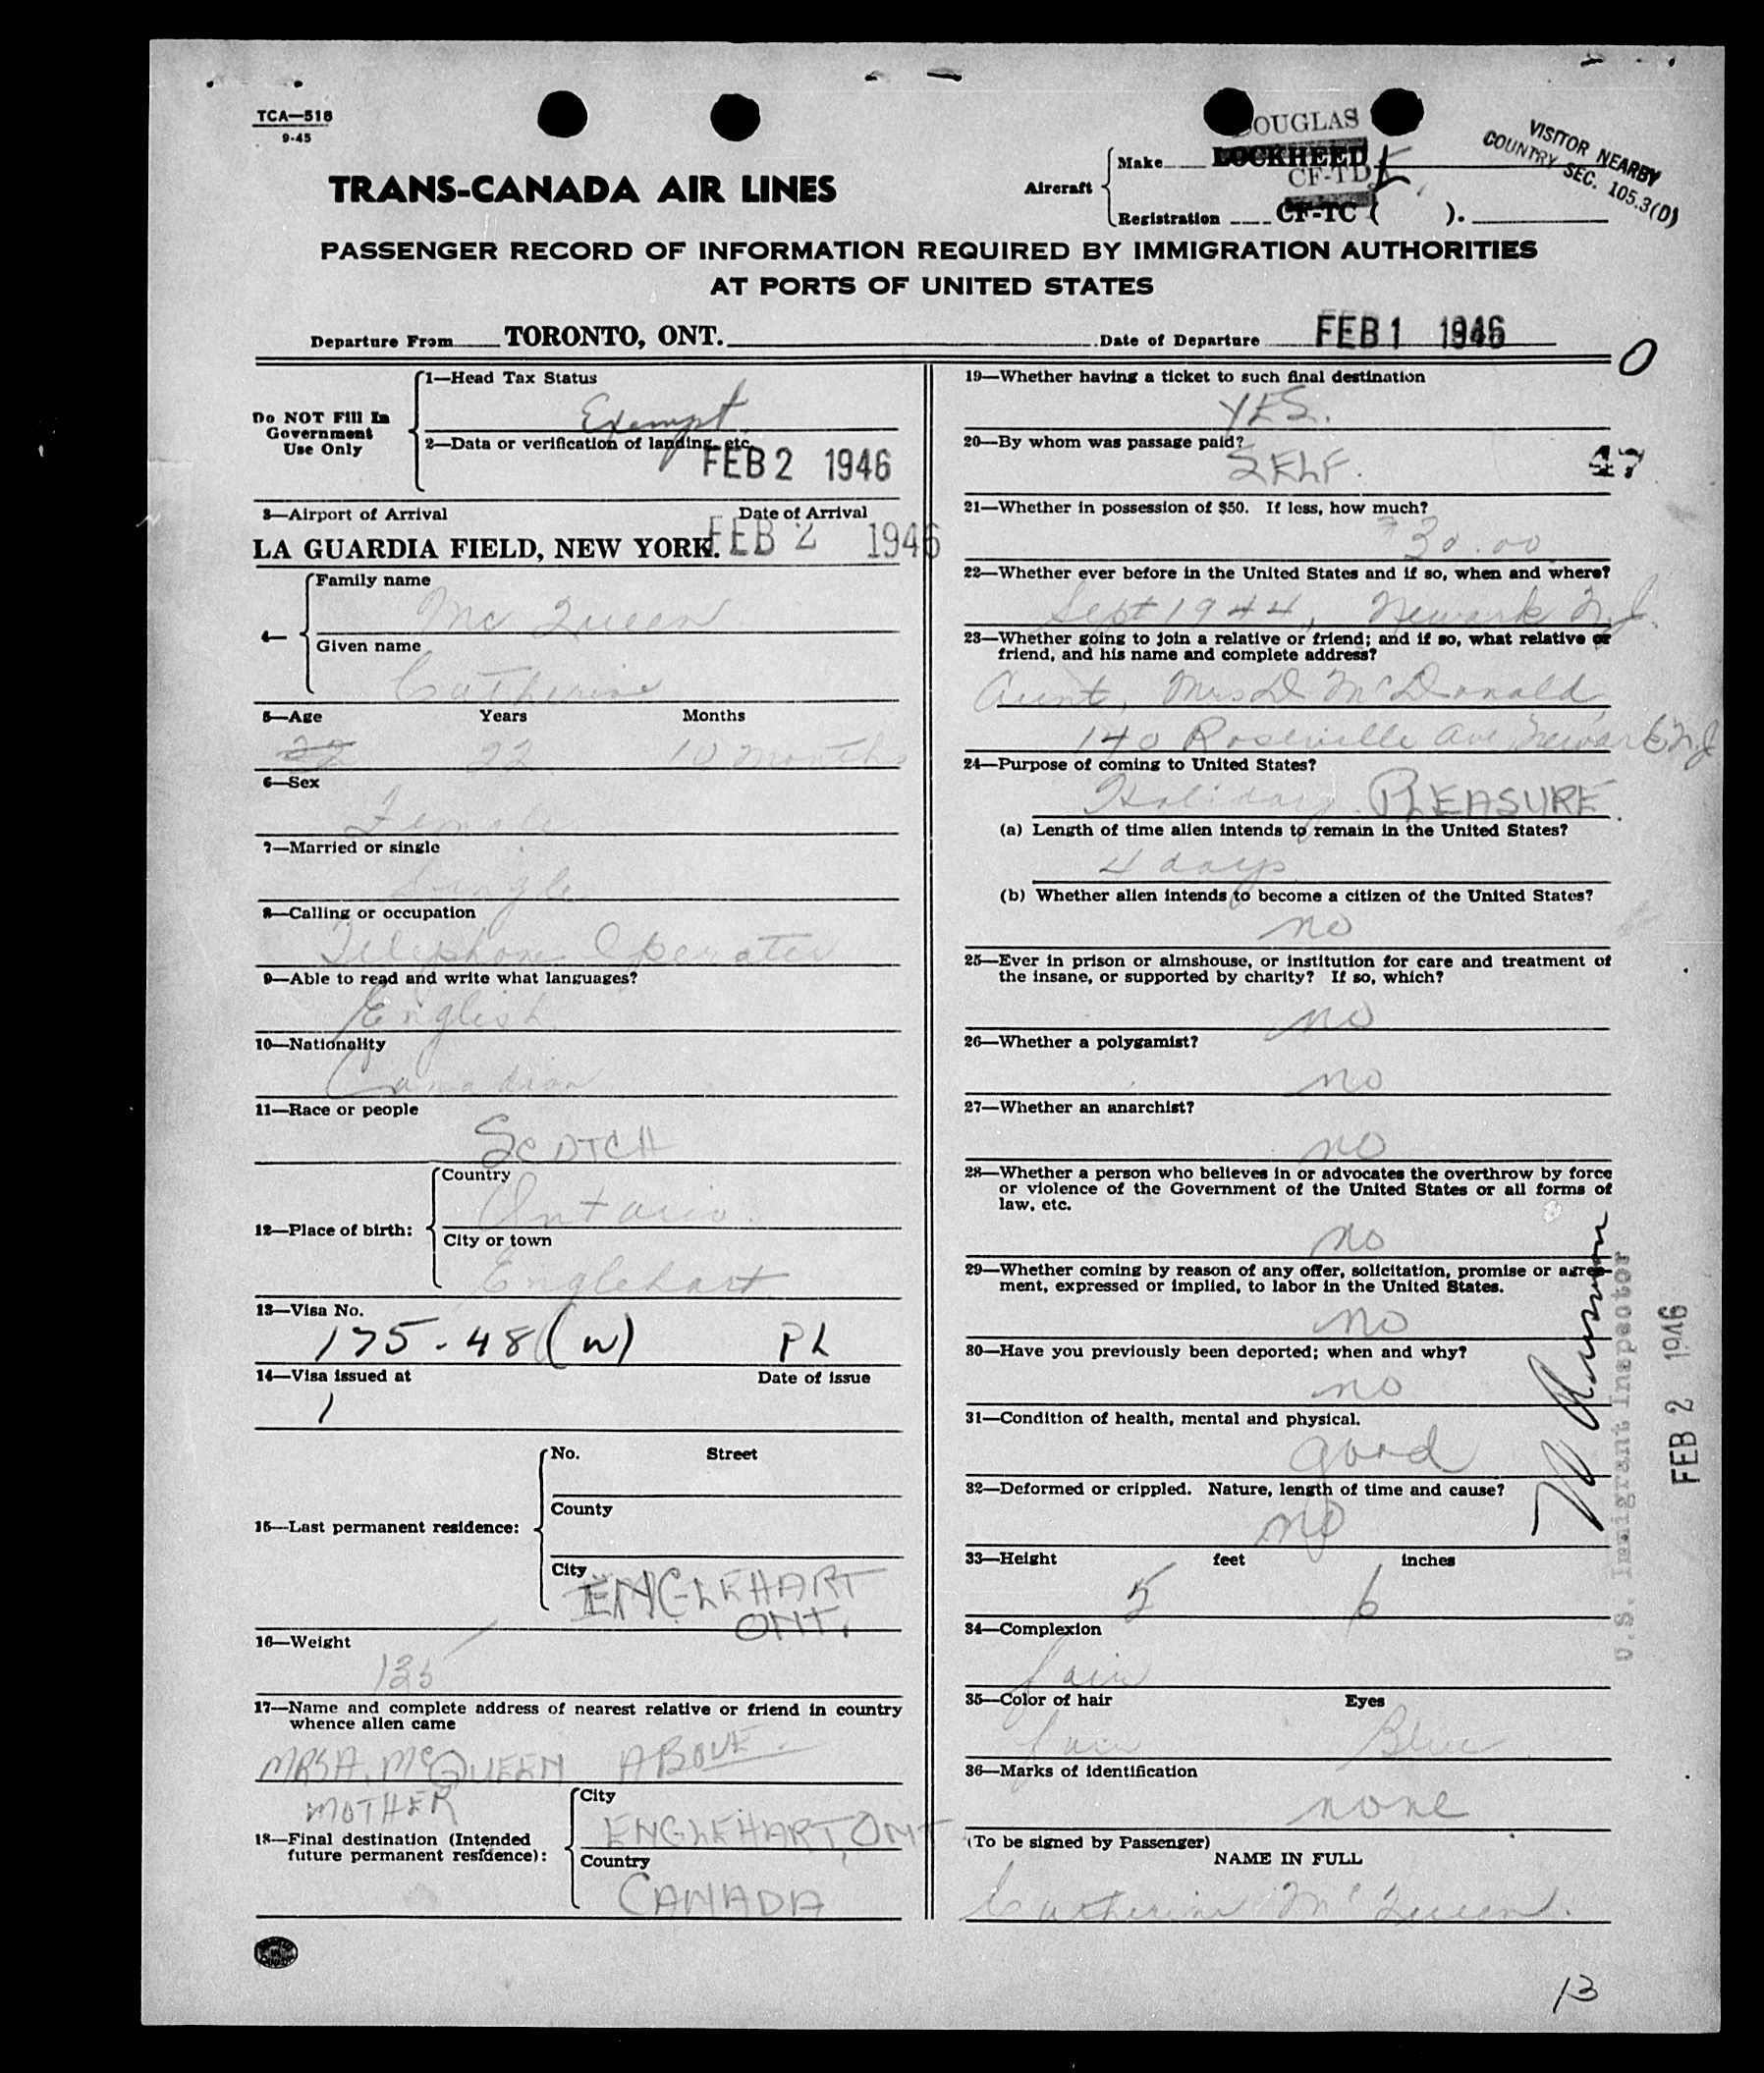 TCA—518
9-45
DOUGLAS
Aircraft
Make LOCKHEED
CF-TD
Registration CF-TC ( ).
VISITOR NEARBY
COUNTRY SEC. 105.3(D)
TRANS-CANADA AIR LINES
PASSENGER RECORD OF INFORMATION REQUIRED BY IMMIGRATION AUTHORITIES
AT PORTS OF UNITED STATES
Departure From TORONTO, ONT. Date of Departure FEB 1 1946
0
Do NOT Fill In
Government
Use Only
1—Head Tax Status
Exempt
2—Data or verification of landing, etc.
FEB 2 1946
3—Airport of Arrival Date of Arrival
LA GUARDIA FIELD, NEW YORK. FEB 2 1946
4—
Family name
Mc Queen
Given name
Catherine
5—Age Years Months
22 22 10 months
6—Sex
Female
7—Married or single
Single
8—Calling or occupation
Telephone Operator
9—Able to read and write what languages?
English
10—Nationality
Canadian
11—Race or people
SCOTCH
12—Place of birth:
Country
Ontario.
City or town
Englehart
13—Visa No.
175-48 (W) PL
14—Visa issued at Date of issue
1
15—Last permanent residence:
No. Street
County
City
ENGLEHART
ONT.
16—Weight
135
17—Name and complete address of nearest relative or friend in country
whence alien came
MRS A. McQUEEN ABOVE.
MOTHER
18—Final destination (Intended
future permanent residence):
City
ENGLEHART, ONT
Country
CANADA
19—Whether having a ticket to such final destination
YES.
20—By whom was passage paid?
SELF.
47
21—Whether in possession of $50. If less, how much?
30.00
22—Whether ever before in the United States and if so, when and where?
Sept 1944, Newark N.J.
23—Whether going to join a relative or friend; and if so, what relative or
friend, and his name and complete address?
Aunt, Mrs D McDonald,
140 Roseville Ave Newark N.J
24—Purpose of coming to United States?
Holiday PLEASURE.
(a) Length of time alien intends to remain in the United States?
4 days
(b) Whether alien intends to become a citizen of the United States?
no
25—Ever in prison or almshouse, or institution for care and treatment of
the insane, or supported by charity? If so, which?
no
26—Whether a polygamist?
no
27—Whether an anarchist?
no
28—Whether a person who believes in or advocates the overthrow by force
or violence of the Government of the United States or all forms of
law, etc.
no
29—Whether coming by reason of any offer, solicitation, promise or agree-
ment, expressed or implied, to labor in the United States.
no
30—Have you previously been deported; when and why?
no
31—Condition of health, mental and physical.
good
32—Deformed or crippled. Nature, length of time and cause?
no
33—Height feet inches
5 6
34—Complexion
fair
35—Color of hair Eyes
fair Blue
36—Marks of identification
none
(To be signed by Passenger)
NAME IN FULL
Catherine McQueen.
U.S. Immigrant Inspector
FEB 2 1946
13